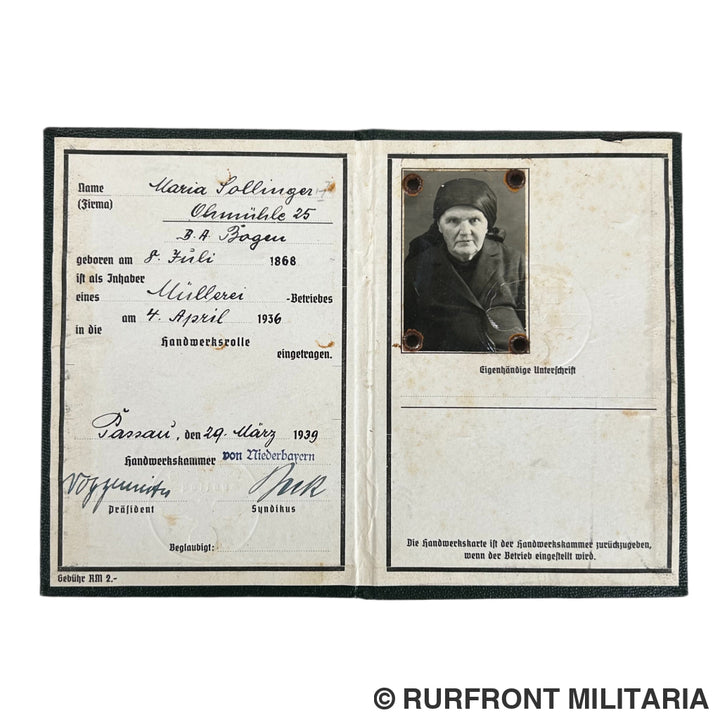 Name Maria Sollinger
(Firma) Ohmühle 25
B.A. Bogen
geboren am 8. Juli 1868
ist als Inhaber
eines Müllerei -Betriebes
am 4. April 1936
in die
Handwerksrolle
eingetragen.
Passau, den 29. März 1939
Handwerkskammer von Niederbayern
Präsident Syndikus
Beglaubigt:
Gebühr RM 2.-
Eigenhändige Unterschrift
Die Handwerkskarte ist der Handwerkskammer zurückzugeben,
wenn der Betrieb eingestellt wird.
© RURFRONT MILITARIA